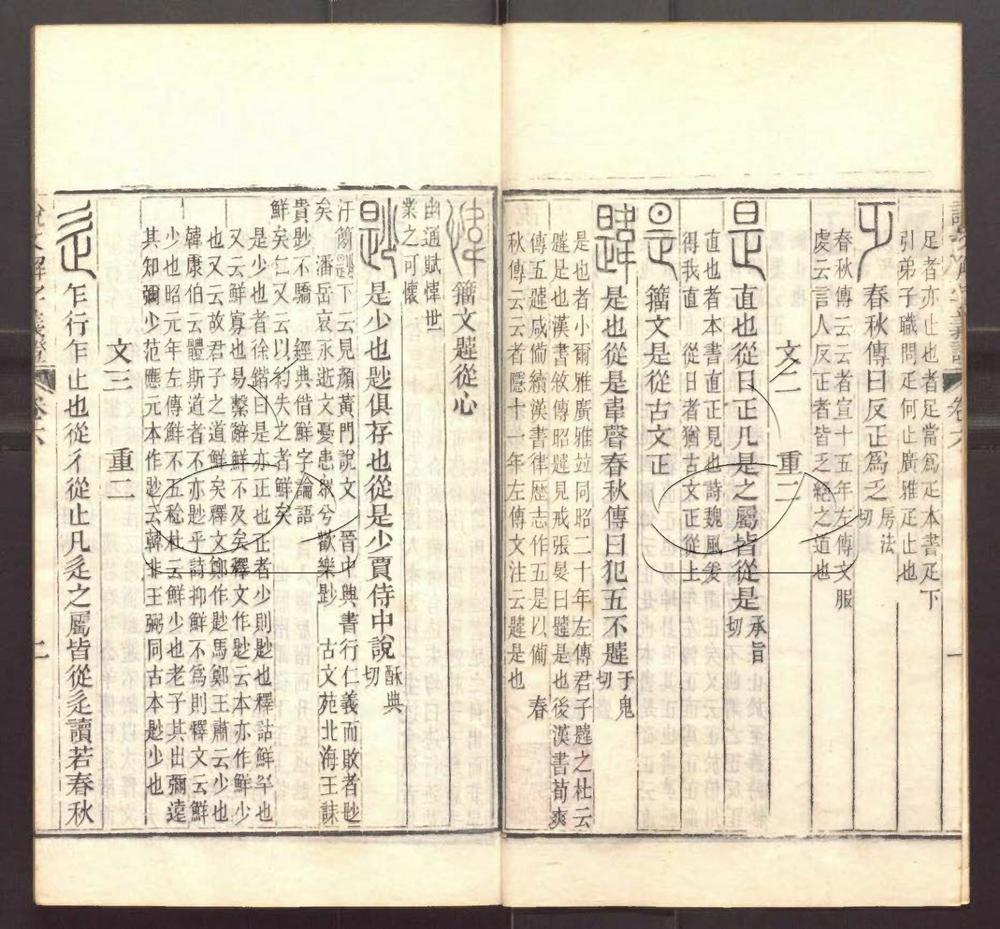 足者亦止也者足當爲疋本書疋下
引弟子職問疋何止廣雅疋止也
春秋傳曰反正爲乏房法切
春秋傳云云者宣十五年左傳文服
虔云言人反正者皆乏絕之道也
文二 重二
是 直也從日正凡是之屬皆從是承旨切
直也者本書直正見也詩魏風爰
得我直 從日者猶古文正從上
籀文是從古文正
韙 是也從是韋聲春秋傳曰犯五不韙于鬼切
是也者小爾雅廣雅竝同昭二十年左傳君子韙之杜云
韙是也漢書敘傳昭韙見戒張晏曰韙是也後漢書荀爽
傳五韙咸僃續漢書律歷志作五是以僃 春
秋傳云云者隱十一年左傳文注云韙是也
籀文韙從心
幽通賦愇世
業之可懷
尟 是少也尟俱存也從是少賈侍中說酥典切
汗簡尟下云見顏黃門說文 晉中興書行仁義而敗者尟
矣 潘岳哀永逝文憂患眾兮歡樂尟 古文苑北海王誄
貴尟不驕 經典借鮮字論語
鮮矣仁又云以約失之者鮮矣
是少也者徐鍇曰是亦正也正者少則尟也釋詁鮮罕也
又云鮮寡也易繫辭鮮不及矣釋文作尟云本亦作鮮少
也又云故君子之道鮮矣釋文鄭作尟馬鄭王肅云少也
韓康伯云體斯道者不亦尟乎詩抑鮮不爲則釋文云鮮
少也昭元年左傳鮮不五稔杜云鮮少也老子其出彌遠
其知彌少范應元本作尟云韓非王弼同古本尟少也
文三 重二
辵 乍行乍止也從彳從止凡辵之屬皆從辵讀若春秋
卷六
二
一